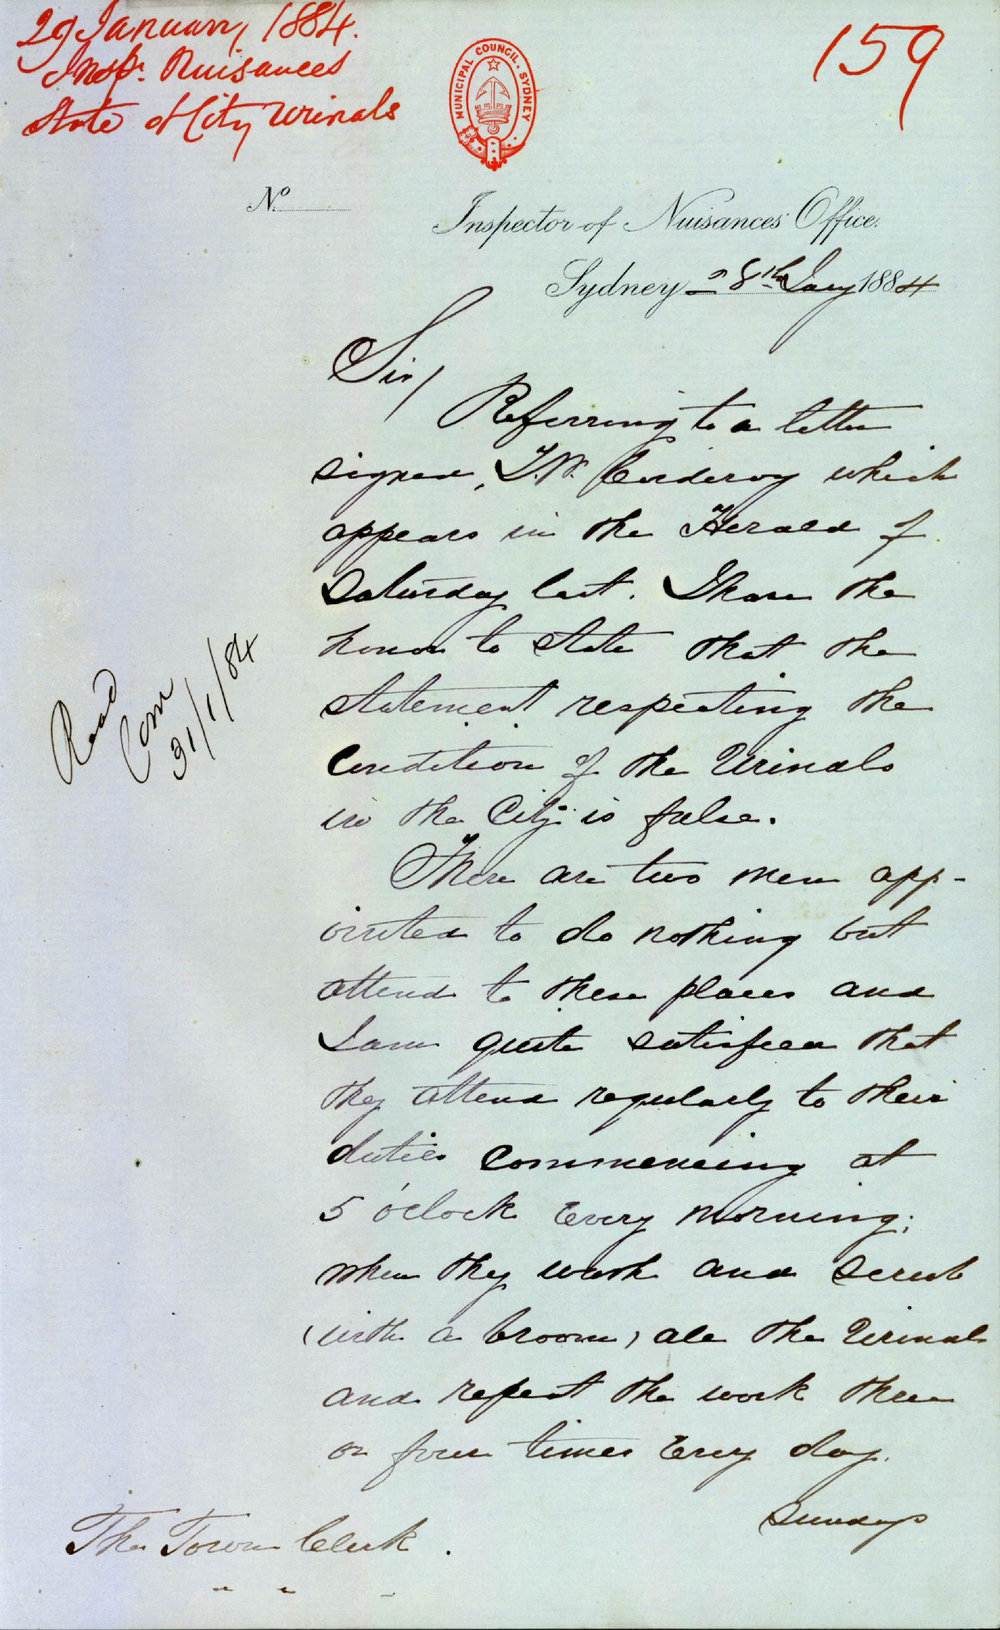 29 January, 1884.
Insp. Nuisances
State of City Urinals
159
MUNICIPAL COUNCIL · SYDNEY
No
Inspector of Nuisances' Office.
Sydney 28th Jany 1884
Sir/
Referring to a letter
signed, J.W. Corderoy which
appears in the Herald of
Saturday last. I have the
honor to state that the
statement respecting the
Condition of the Urinals
in the City is false.
There are two men app-
ointed to do nothing but
attend to these places and
I am quite satisfied that
they attend regularly to their
duties commencing at
5 o'clock every morning;
when they wash and scrub
(with a broom) all the Urinals
and repeat the work three
or four times every day.
Sundays
Read
Com
31/1/84
The Town Clerk.